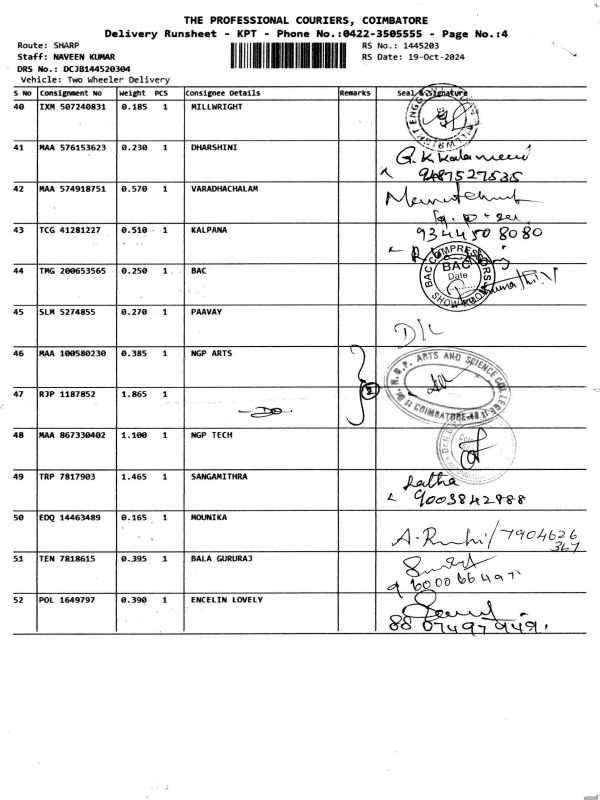 THE PROFESSIONAL COURIERS, COIMBATORE
Delivery Runsheet - KPT - Phone No.:0422-3505555 - Page No.:4
Route: SHARP RS No.: 1445203
Staff: NAVEEN KUMAR RS Date: 19-Oct-2024
DRS No.: DCJB144520304
Vehicle: Two Wheeler Delivery
S No Consignment No Weight PCS Consignee Details Remarks Seal & Signature
40 IXM 507240831 0.185 1 MILLWRIGHT
41 MAA 576153623 0.230 1 DHARSHINI
9487527535
42 MAA 574918751 0.570 1 VARADHACHALAM
43 TCG 41281227 0.510 1 KALPANA 9344508080
44 TMG 200653565 0.250 1 BAC
BAC COMPRESSORS
BAC
Date
45 SLM 5274855 0.270 1 PAAVAY D/L
46 MAA 100580230 0.385 1 NGP ARTS
Dr. N.G.P. ARTS AND SCIENCE COLLEGE
COIMBATORE-48
47 RJP 1187852 1.865 1 -Do- 2
48 MAA 867330402 1.100 1 NGP TECH
49 TRP 7817903 1.465 1 SANGAMITHRA Latha
9003842888
50 EDQ 14463489 0.165 1 MOUNIKA 7904626
367
51 TEN 7818615 0.395 1 BALA GURURAJ
52 POL 1649797 0.390 1 ENCELIN LOVELY
8807497949.